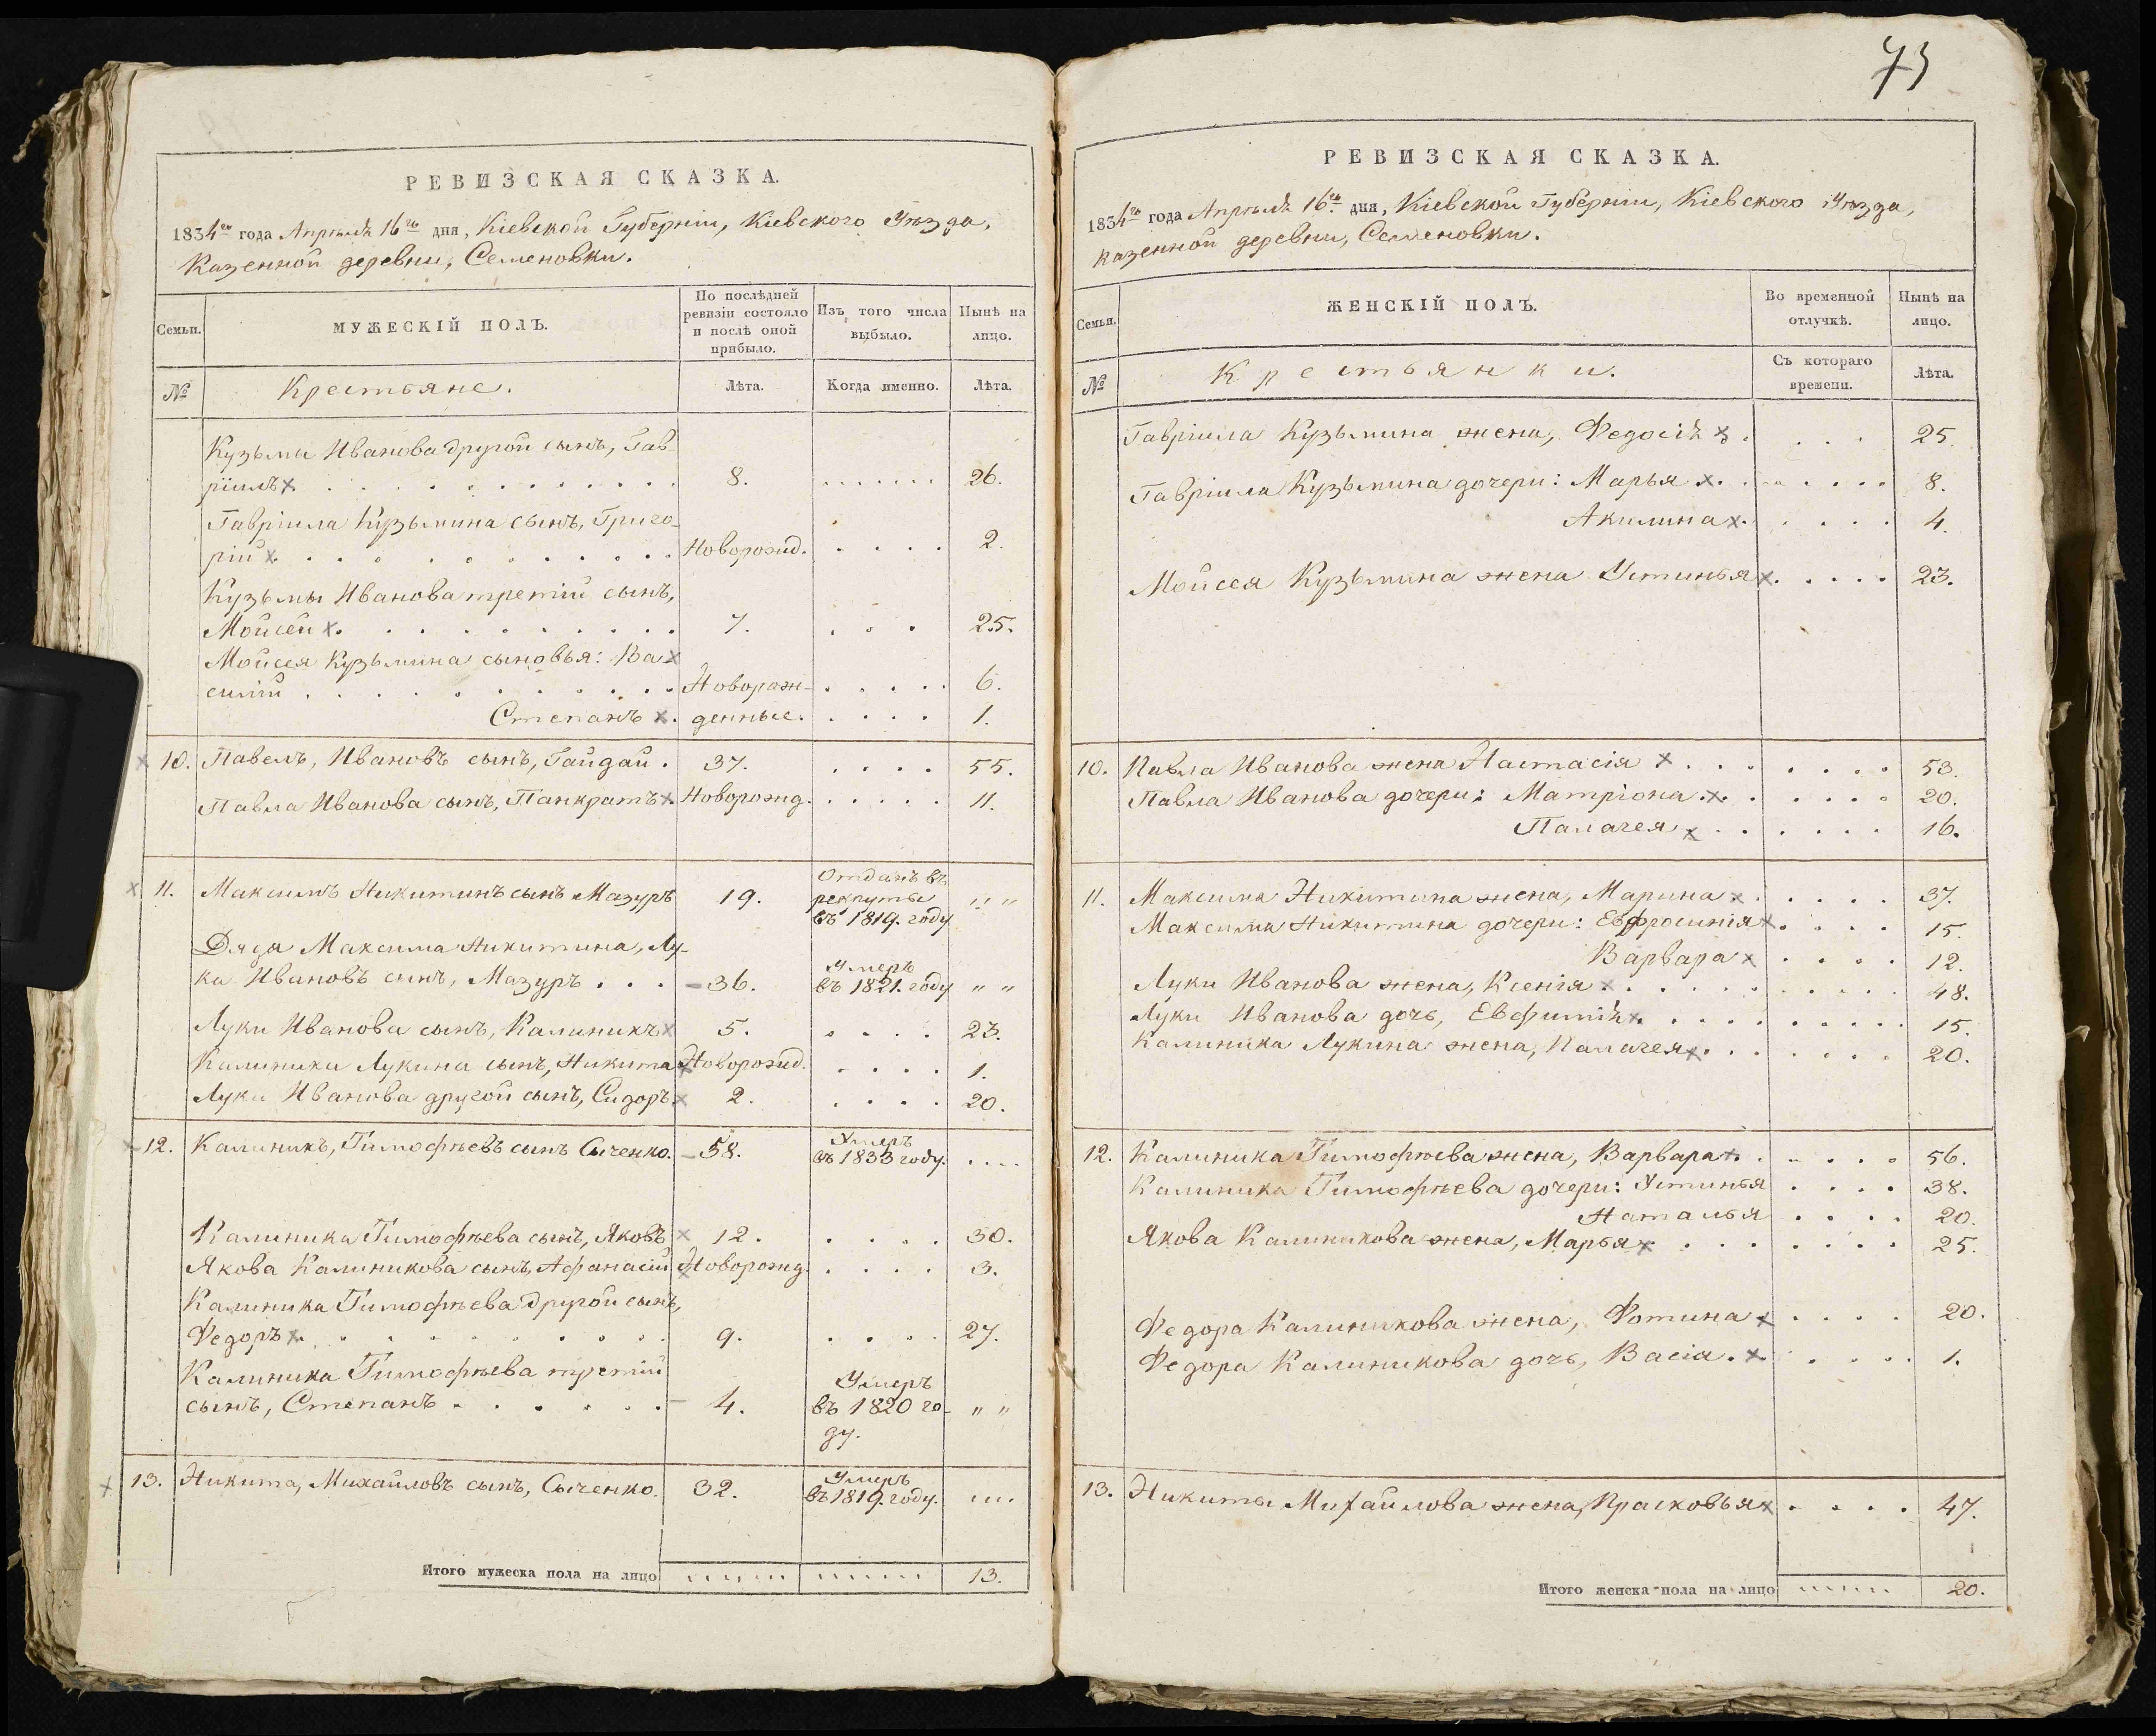 РЕВИЗСКАЯ СКАЗКА.
1834го года Апрѣля 16го дня, Кіевской Губерніи, Кіевского Уѣзда,
Казенной деревни, Семеновки.
Семьи.
МУЖЕСКІЙ ПОЛЪ.
По послѣдней
ревизіи состояло
и послѣ оной
прибыло.
Изъ того числа
выбыло.
Нынѣ на
лицо.
№
Крестьяне.
Лѣта.
Когда именно.
Лѣта.
Кузьмы Иванова другой сынъ, Гав
ріилъ x . . . 8. . . . 26.
Гавріила Кузьмина сынъ, Григо-
рій x . . . Новорожд. . . . 2.
Кузьмы Иванова третій сынъ,
Мойсей x . . . 7. . . . 25.
Мойсея Кузьмина сыновья: Ва x
силій . . . Новорож- . . . 6.
Степанъ x . денные. . . . 1.
x 10. Павелъ, Ивановъ сынъ, Гайдай . 37. . . . 55.
Павла Иванова сынъ, Панкратъ x Новорожд. . . . 11.
x 11. Максимъ Никитинъ сынъ Мазуръ 19. Отданъ въ
рекруты
въ 1819. году " "
Дядя Максима Никитина, Лу-
ка Ивановъ сынъ, Мазуръ . . . - 36. Умеръ
въ 1821. году " "
Луки Иванова сынъ, Калиникъ x 5. . . . 23.
Калиника Лукина сынъ, Никита x Новорожд. . . . 1.
Луки Иванова другой сынъ, Сидоръ x 2. . . . 20.
x 12. Калиникъ, Тимофѣевъ сынъ Сыченко. - 58. Умеръ
въ 1833 году. ....
Калиника Тимофѣева сынъ, Яковъ x 12. . . . 30.
Якова Калиникова сынъ, Афанасій x Новорожд. . . . 3.
Калиника Тимофѣева другой сынъ,
Федоръ x . . . 9. . . . 27.
Калиника Тимофѣева третій
сынъ, Степанъ . . . - 4. Умеръ
въ 1820 го-
ду. " "
x 13. Никита, Михайловъ сынъ, Сыченко. 32. Умеръ
въ 1819. году. ....
Итого мужеска пола на лицо 13.
73
РЕВИЗСКАЯ СКАЗКА.
1834го года Апрѣля 16го дня, Кіевской Губерніи, Кіевского Уѣзда,
казенной деревни, Семеновки.
Семьи.
ЖЕНСКІЙ ПОЛЪ.
Во временной
отлучкѣ.
Нынѣ на
лицо.
№
Крестьянки.
Съ котораго
времени.
Лѣта.
Гавріила Кузьмина жена, Федосія x . . . 25.
Гавріила Кузьмина дочери: Марья x . . . 8.
Акилина x . . . 4.
Мойсея Кузьмина жена Устинья x . . . 23.
10. Павла Иванова жена Настасія x . . . 53.
Павла Иванова дочери: Матріона x . . . 20.
Палагея x . . . 16.
11. Максима Никитина жена, Марина x . . . 37.
Максима Никитина дочери: Евфросинія x . . . 15.
Варвара x . . . 12.
Луки Иванова жена, Ксенія x . . . 48.
Луки Иванова дочь, Евфимія x . . . 15.
Калиника Лукина жена, Палагея x . . . 20.
12. Калиника Тимофѣева жена, Варвара x . . . 56.
Калиника Тимофѣева дочери: Устинья . . . 38.
Наталья . . . 20.
Якова Калиникова жена, Марья x . . . 25.
Федора Калиникова жена, Фотина x . . . 20.
Федора Калиникова дочь, Васіа . x . . . 1.
13. Никиты Михайлова жена, Прасковья x . . . 47.
Итого женска пола на лицо 20.